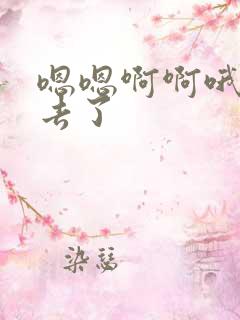 嗯嗯啊啊哦
去了
染瑟